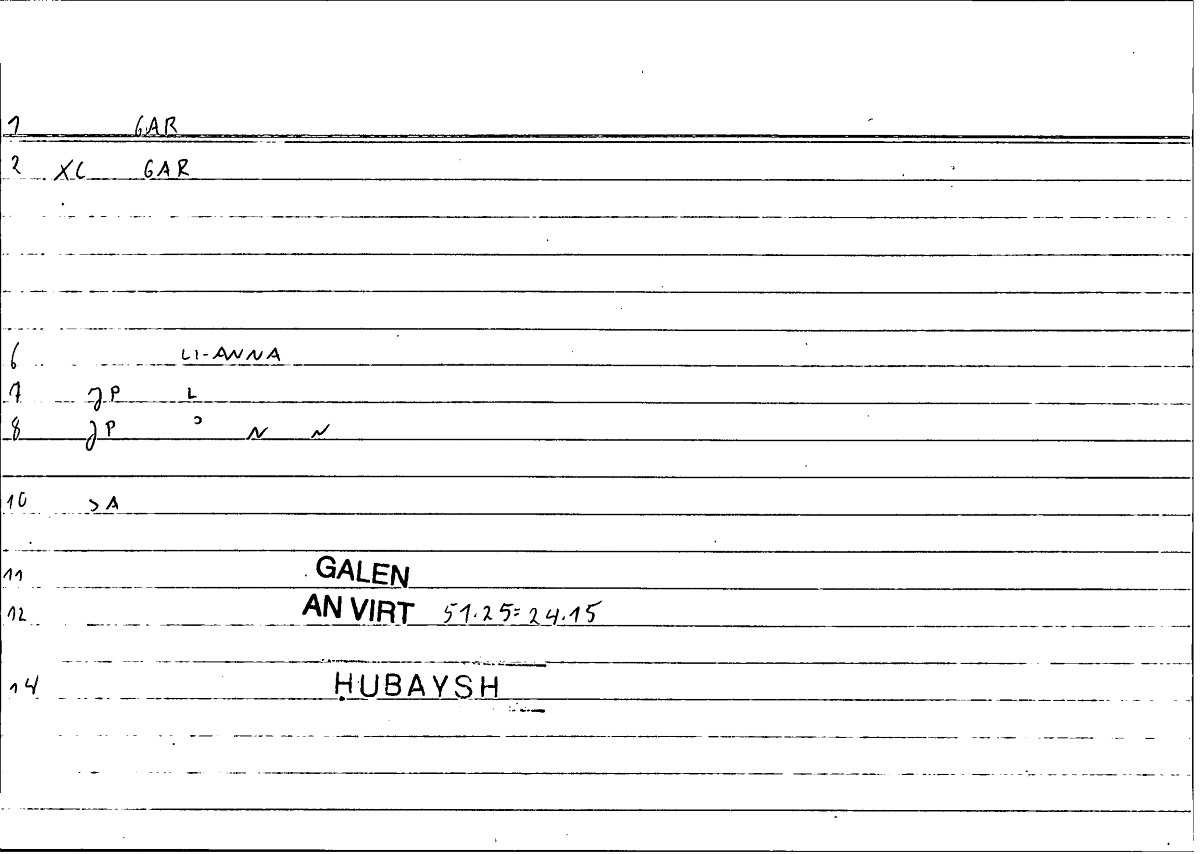 1 GAR
2 XL GAR
6 LI-ANNA
7 P L
8 P N N
10 >A
11 GALEN
12 AN VIRT 51.25=24.15
14 ḤUBAYSH